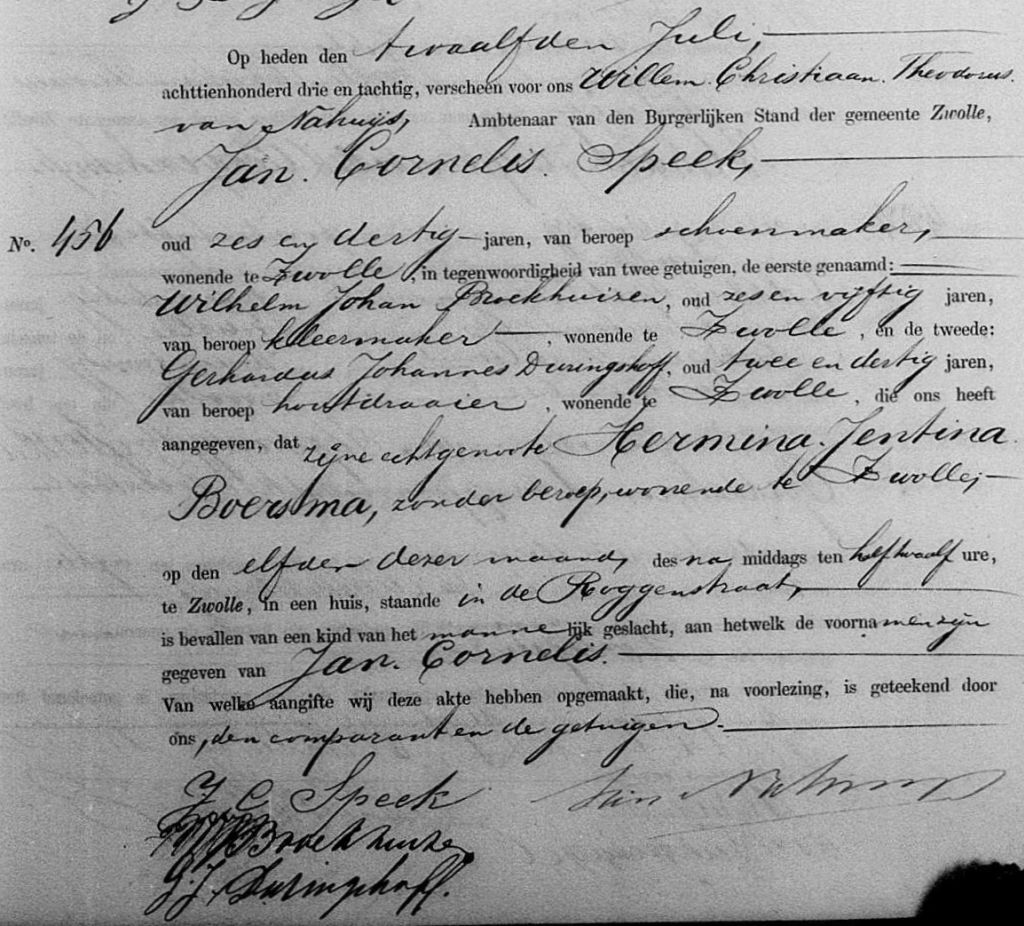 Op heden den twaalfden Juli,
achttienhonderd drie en tachtig, verscheen voor ons Willem. Christiaan. Theodorus.
van Nahuijs, Ambtenaar van den Burgerlijken Stand der gemeente Zwolle,
Jan. Cornelis. Speek,
No. 456 oud zes en dertig jaren, van beroep schoenmaker,
wonende te Zwolle, in tegenwoordigheid van twee getuigen, de eerste genaamd:
Wilhelm Johan Broekhuizen, oud zes en vijftig jaren,
van beroep kleermaker, wonende te Zwolle, en de tweede:
Gerhardus Johannes Duringshoff, oud twee en dertig jaren,
van beroep houtdraaier, wonende te Zwolle, die ons heeft
aangegeven, dat zijne echtgenoote Hermina. Jentina.
Boersma, zonder beroep, wonende te Zwolle,
op den elfden dezer maand, des na middags ten half twaalf ure,
te Zwolle, in een huis, staande in de Roggenstraat,
is bevallen van een kind van het mannelijk geslacht, aan hetwelk de voornamen zijn
gegeven van Jan. Cornelis.
Van welke aangifte wij deze akte hebben opgemaakt, die, na voorlezing, is geteekend door
ons, den comparant en de getuigen.
J C Speek
Broekhuize
G. J. Duringshoff.